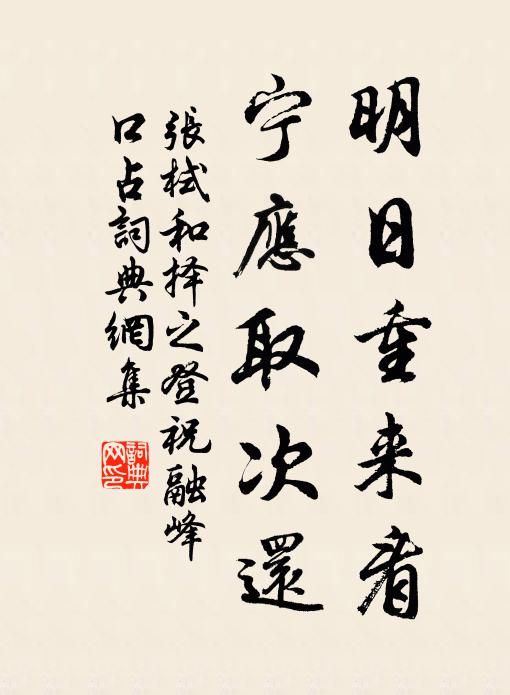 明日重来看
宁應取次還
張栻和择之登祝融峰
口占詞典網集
詞典
网印